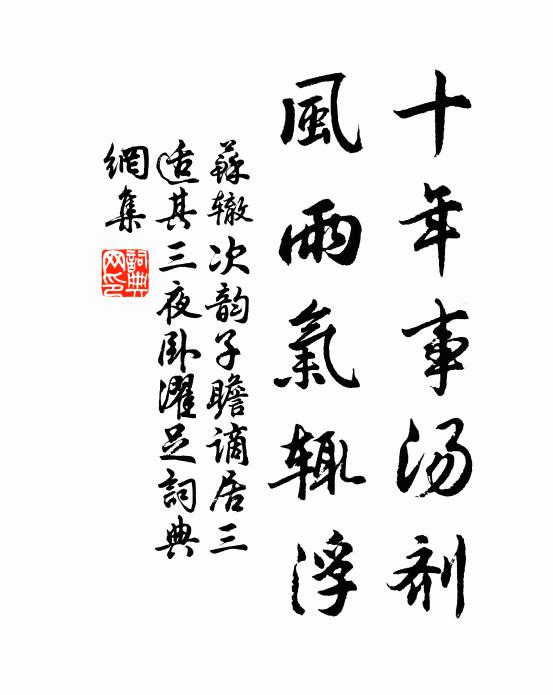 十年事汤剂
風雨氣辄浮
蘇辙次韵子瞻谪居三
适其三夜卧濯足詞典
網集
詞典网印